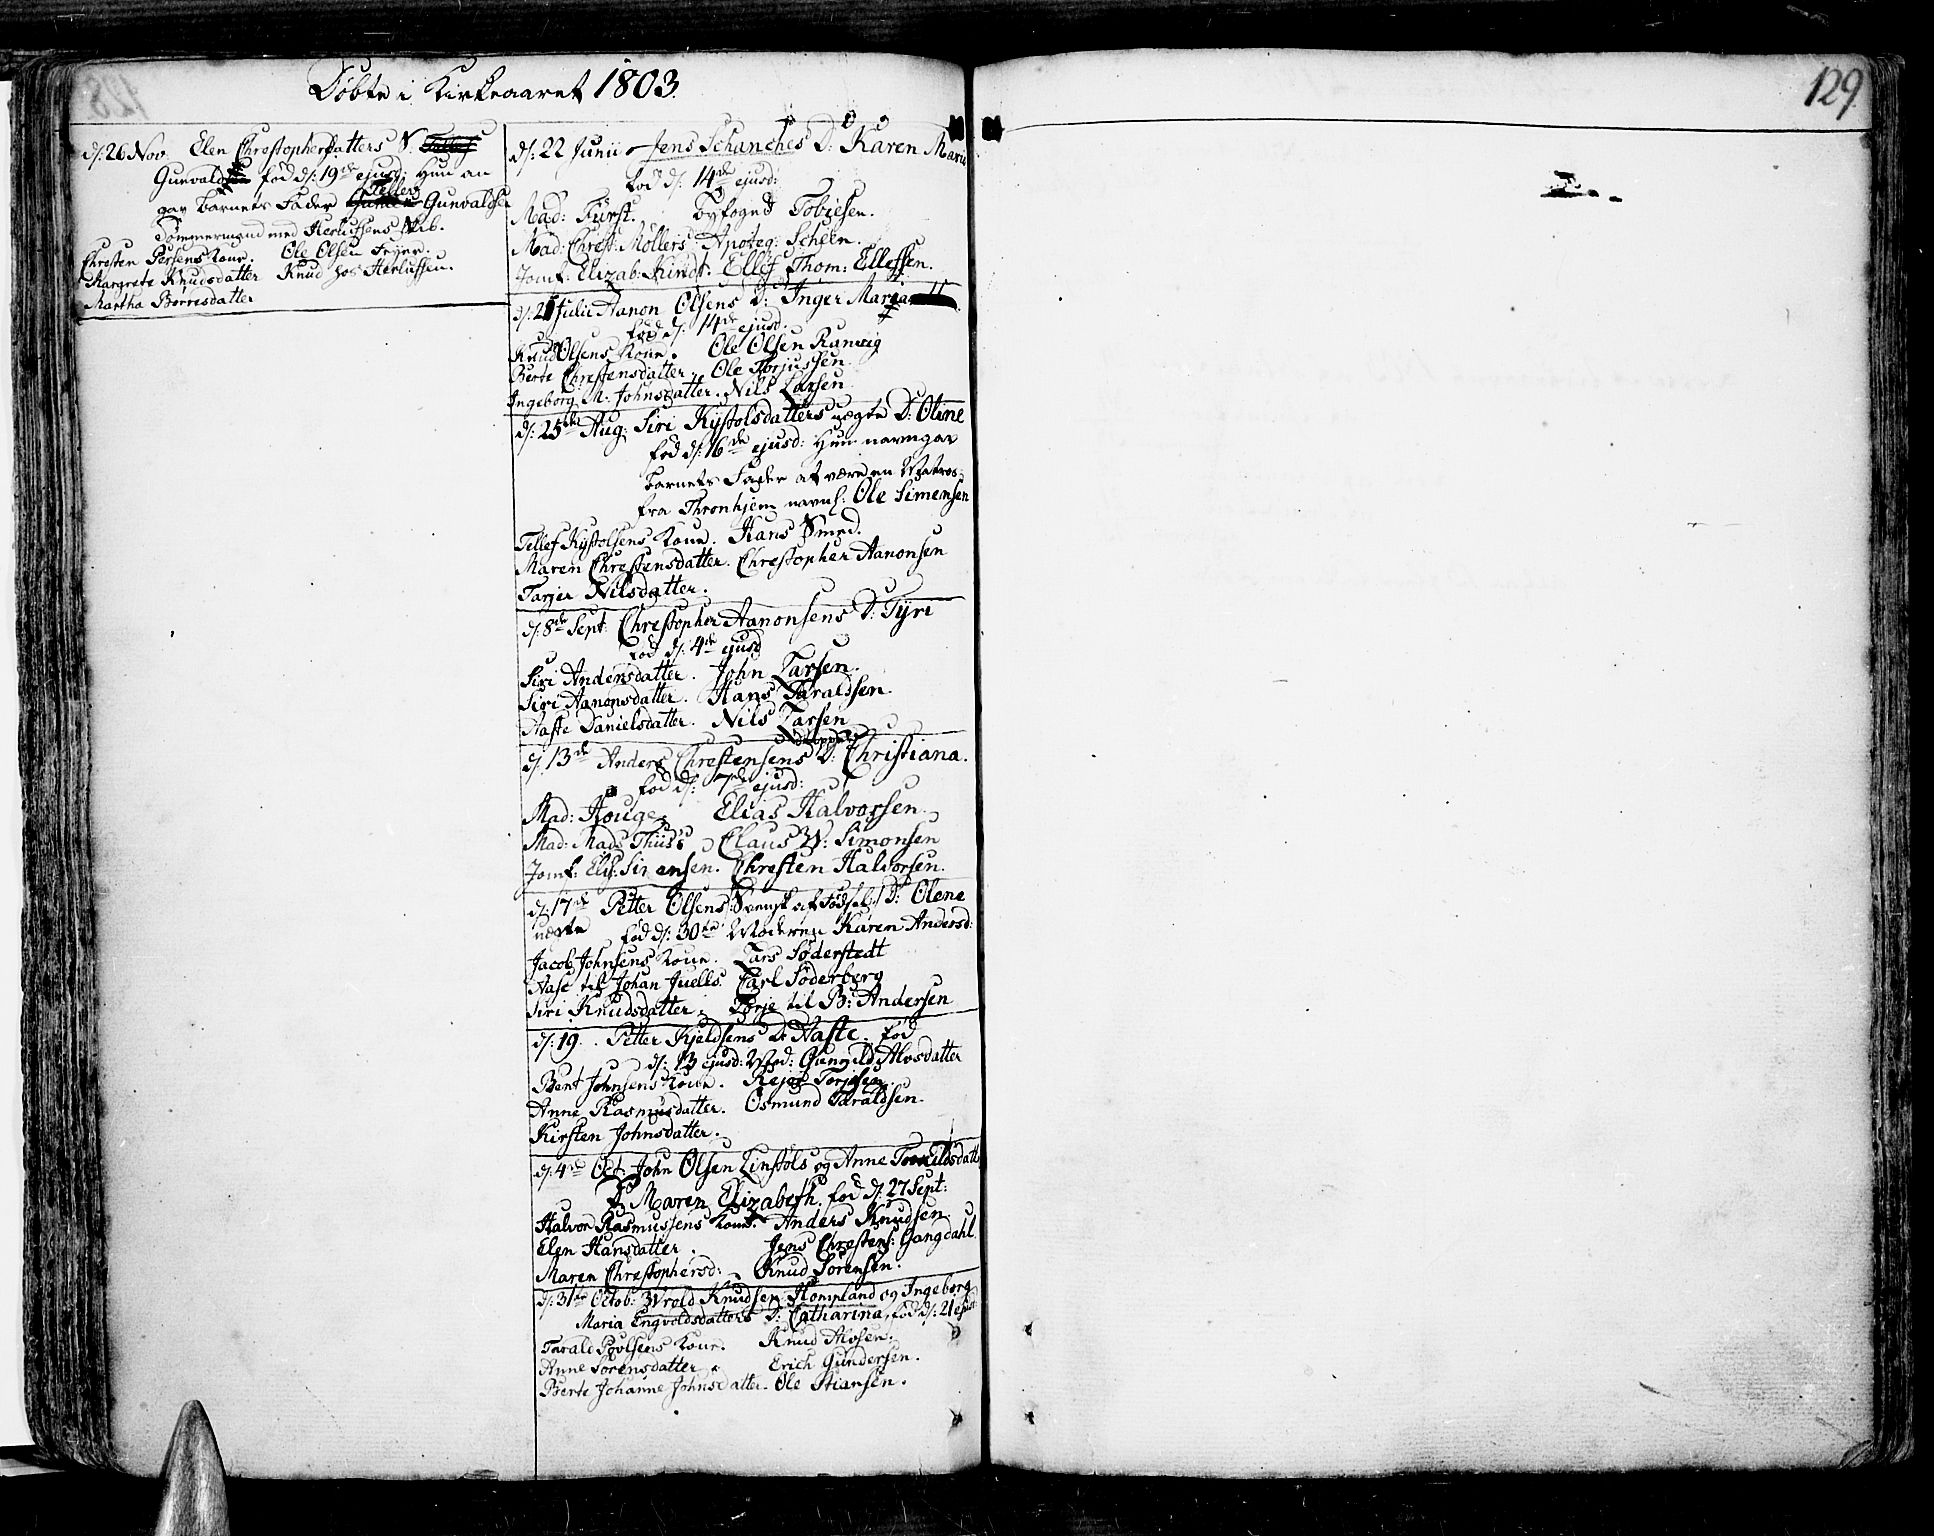 Døbte i Kirkeaaret 1803.
129
d: 26 Nov. Elen Christophersdatters S.
Gunvald født d: 19de ejusd: Hun an
gav barnets Fader Tellef Gunvaldsen
Tømmermand med Herlufsens Skib.
Christen Persens Kone. Ole Olsen Frÿer.
Margrete Knudsdatter Knud hos Herlufsen.
Martha Børresdatter
d: 22 Junii Jens Schanches D: Karen Maria
fød d: 14de ejusd:
Mad: Fürst. Byfoged Tobiesen.
Mad: Christ: Møllers Apoteq: Scheen.
Jomf: Elizab: Kindt. Ellef Thom: Ellefsen.
d: 21 Julii Aanon Olsens D: Inger Maria
fød d: 14de ejusd.
Knud Olsens Kone. Ole Olsen Ramvig
Berte Christensdatter. Ole Torjussen
Ingeborg M. Johnsdatter. Nils Larsen
d: 25de Aug: Siri Kÿstolsdatters uægte D: Oline
fød d: 16de ejusd: Hun navngav
barnets Fader at være en Matros
fra Thronhjem navnl: Ole Simensen
Tellef Kÿstolsens Kone. Hans Smed.
Maren Christensdatter. Christopher Aanonsen
Tarjer Nilsdatter.
d: 8de Sept: Christopher Aanonsens D: Tÿri
fød d: 4de ejusd
Siri Andersdatter. John Larsen.
Siri Aanonsdatter. Hans Taraldsen.
Aaste Danielsdatter. Nils Larsen
d: 13de Anders Christensens D: Christiana.
fød d: 7de ejusd:
Mad: Houge. Elias Halvorsen.
Mad: Mads Thiis's Claus W: Simonsen
Jomf: Elis: Simensen. Christen Halvorsen.
d: 17de Petter Olsens /: Svensk af Fødsel :/ D: Olene
uægte fød d: 30te Moderen Karen Andersd:
Jacob Johnsens Kone. Lars Söderstedt
Aase til Johan Juells. Carl Söderberg
Siri Knudsdatter. Torje til B: Andersen
d: 19. Petter Kjeldsens D: Aaste. fød
d: 13 ejusd: Mod: Gunvild Alvsdatter
Bent Johnsens Kone. Rejer Torjusen.
Anne Rasmusdatter. Osmund Taraldsen.
Kirsten Johnsdatter.
d: 4de Oct: John Olsen Linstøls og Anne Torkildsdatt:
D: Maren Elizabeth. fød d: 27 Sept:
Halvor Rasmussens Kone. Anders Knudsen.
Elen Hansdatter. Jens Christens: Gangdahl
Maren Christophersd: Knud Sørensen.
d: 31te Octob: Wrold Knudsen Hompland og Ingeborg
Maria Engvoldsdatters D: Catharina, fød d: 21 ejusd:
Tarald Povlsens Kone. Knud Alvsen.
Anne Sørensdatter. Erich Gundersen.
Berte Johanne Johnsdatter. Ole Stiansen.